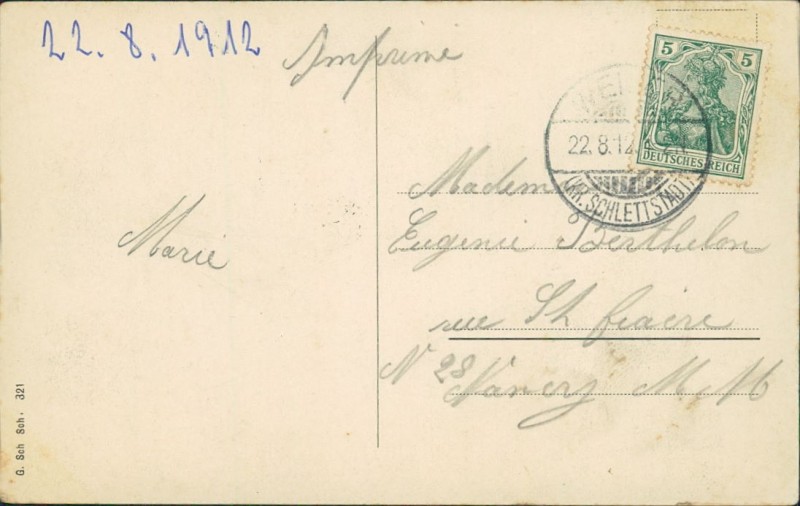 22. 8. 1912
Imprimé
5 5
DEUTSCHES REICH
22. 8. 12.
(KR. SCHLETTSTADT)
Mademoiselle
Eugenie Berthelon
rue St fiacre
N 28
Nancy M. M
Marie
G. Sch Sch. 321